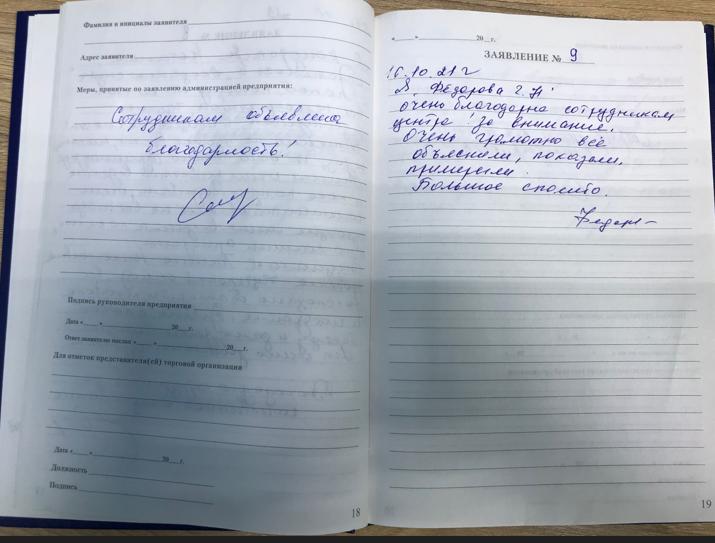 Фамилия и инициалы заявителя
Адрес заявителя
Меры, принятые по заявлению администрацией предприятия:
Сотрудникам объявлена
благодарность!
Подпись руководителя предприятия
Дата «___» ___ 20__г.
Ответ заявителю послан «___» ___ 20__г.
Для отметок представителя(ей) торговой организации
Дата «___» ___ 20__г.
Должность
Подпись
18
«___» ___ 20__г.
ЗАЯВЛЕНИЕ № 9
16.10.21г
Я Федорова Г.Н.
очень благодарна сотрудникам
центра за внимание.
Очень грамотно все
объяснили, показали,
примерили.
Большое спасибо.
19